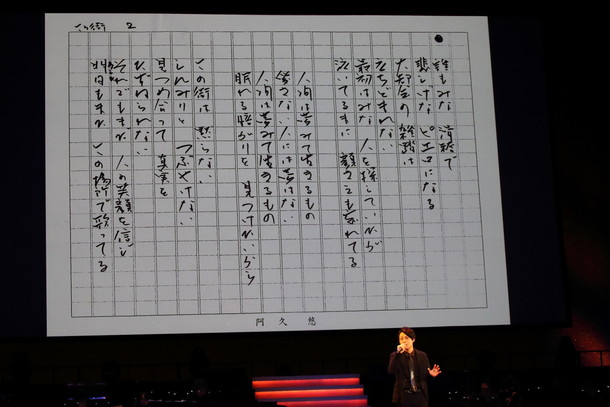 この街 2
誰もみな 滑稽で
悲しげな ピエロになる
大都会の 雑踏は
たちどまれない
最初はみな 人を探していながら
泣いてるまに 顔さえも忘れてる
人間は夢みて生きるもの
ない人には夢はない
人間は夢みて生きるもの
眠れる を 見つけたいから
この街は 黙らない
しんみりと つぶやけない
見つめ合って 真実を
たずねられない
それでもまだ 人の笑顔を信じ
明日もまた この場所で歌ってる
阿久悠